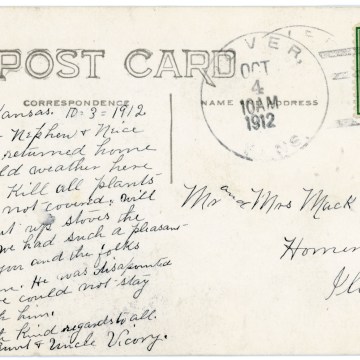 POST CARD
CORRESPONDENCE
NAME AND ADDRESS
VER,
OCT
4
10AM
1912
Kansas. 10-3-1912
Nephew & Niece
returned home
ld weather here
Kill all plants
not covered, will
ut up stoves the
we had such a pleasant
you and the folks
He was disapointed
we could not stay
h him.
Kind regards to all.
Aunt & Uncle Vicory.
Mr and Mrs Mack
Homer
Ill